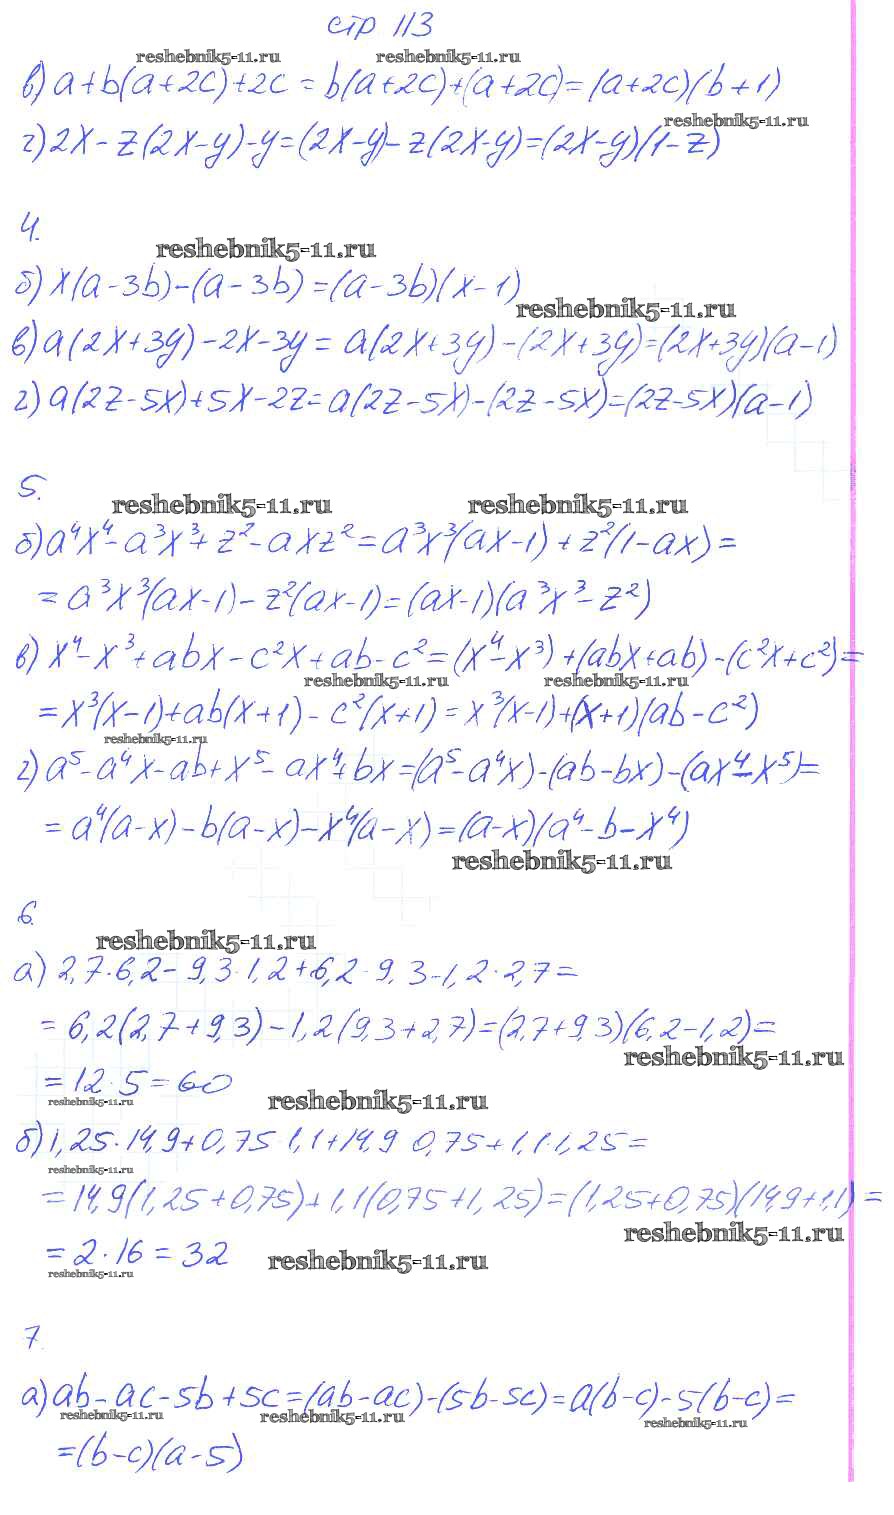 стр 113
reshebnik5-11.ru reshebnik5-11.ru
в) a+b(a+2c)+2c = b(a+2c)+(a+2c)=(a+2c)(b+1)
reshebnik5-11.ru
г) 2x-z(2x-y)-y=(2x-y)-z(2x-y)=(2x-y)(1-z)
4.
reshebnik5-11.ru
б) x(a-3b)-(a-3b)=(a-3b)(x-1)
reshebnik5-11.ru
в) a(2x+3y)-2x-3y = a(2x+3y)-(2x+3y)=(2x+3y)(a-1)
г) a(2z-5x)+5x-2z=a(2z-5x)-(2z-5x)=(2z-5x)(a-1)
5.
reshebnik5-11.ru reshebnik5-11.ru
б) a⁴x⁴-a³x³+z²-axz²=a³x³(ax-1)+z²(1-ax)=
=a³x³(ax-1)-z²(ax-1)=(ax-1)(a³x³-z²)
в) x⁴-x³+abx-c²x+ab-c²=(x⁴-x³)+(abx+ab)-(c²x+c²)=
reshebnik5-11.ru reshebnik5-11.ru
=x³(x-1)+ab(x+1)-c²(x+1)=x³(x-1)+(x+1)(ab-c²)
reshebnik5-11.ru
г) a⁵-a⁴x-ab+x⁵-ax⁴+bx=(a⁵-a⁴x)-(ab-bx)-(ax⁴-x⁵)=
=a⁴(a-x)-b(a-x)-x⁴(a-x)=(a-x)(a⁴-b-x⁴)
reshebnik5-11.ru
6.
reshebnik5-11.ru
а) 2,7·6,2-9,3·1,2+6,2·9,3-1,2·2,7=
=6,2(2,7+9,3)-1,2(9,3+2,7)=(2,7+9,3)(6,2-1,2)=
reshebnik5-11.ru
=12·5=60
reshebnik5-11.ru reshebnik5-11.ru
б) 1,25·14,9+0,75 1,1+14,9 0,75+1,1·1,25=
reshebnik5-11.ru
=14,9(1,25+0,75)+1,1(0,75+1,25)=(1,25+0,75)(14,9+1,1)=
reshebnik5-11.ru
=2·16=32
reshebnik5-11.ru reshebnik5-11.ru
7.
а) ab-ac-5b+5c=(ab-ac)-(5b-5c)=a(b-c)-5(b-c)=
reshebnik5-11.ru reshebnik5-11.ru reshebnik5-11.ru
=(b-c)(a-5)